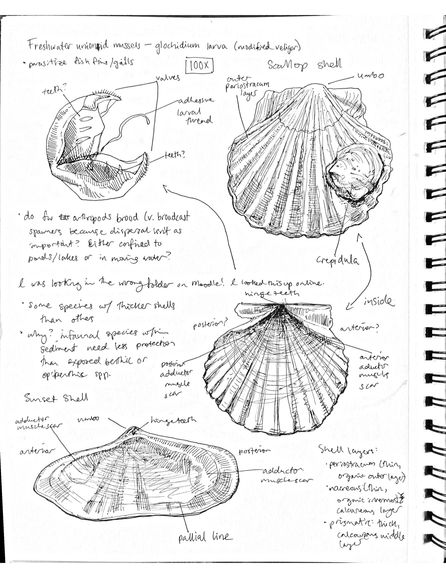 Freshwater unionid mussels – glochidium larva (modified veliger)
• parasitize fish fins/gills
100X
Scallop shell
teeth?
valves
adhesive
larval
thread
teeth?
outer
periostracum
layer
umbo
crepidula
• do fw arthropods brood (v. broadcast
spawners because dispersal isn't as
important? Either confined to
ponds/lakes or in moving water?
I was looking in the wrong folder on Moodle! I looked this up online.
• some species w/ thicker shells
than others
• why? infaunal species w/in
sediment need less protection
than exposed benthic or
epibenthic spp.
hinge teeth
inside
posterior?
anterior?
posterior
adductor
muscle
scar
anterior
aductor
muscle
scar
Sunset shell
adductor
muscle scar
umbo
hinge teeth
anterior
posterior
adductor
muscle scar
pallial line
Shell layers:
• periostracum (thin,
organic outer layer)
• nacreous (thin,
organic innermost
calcareous layer
• prismatic: thick,
calcareous middle
layer